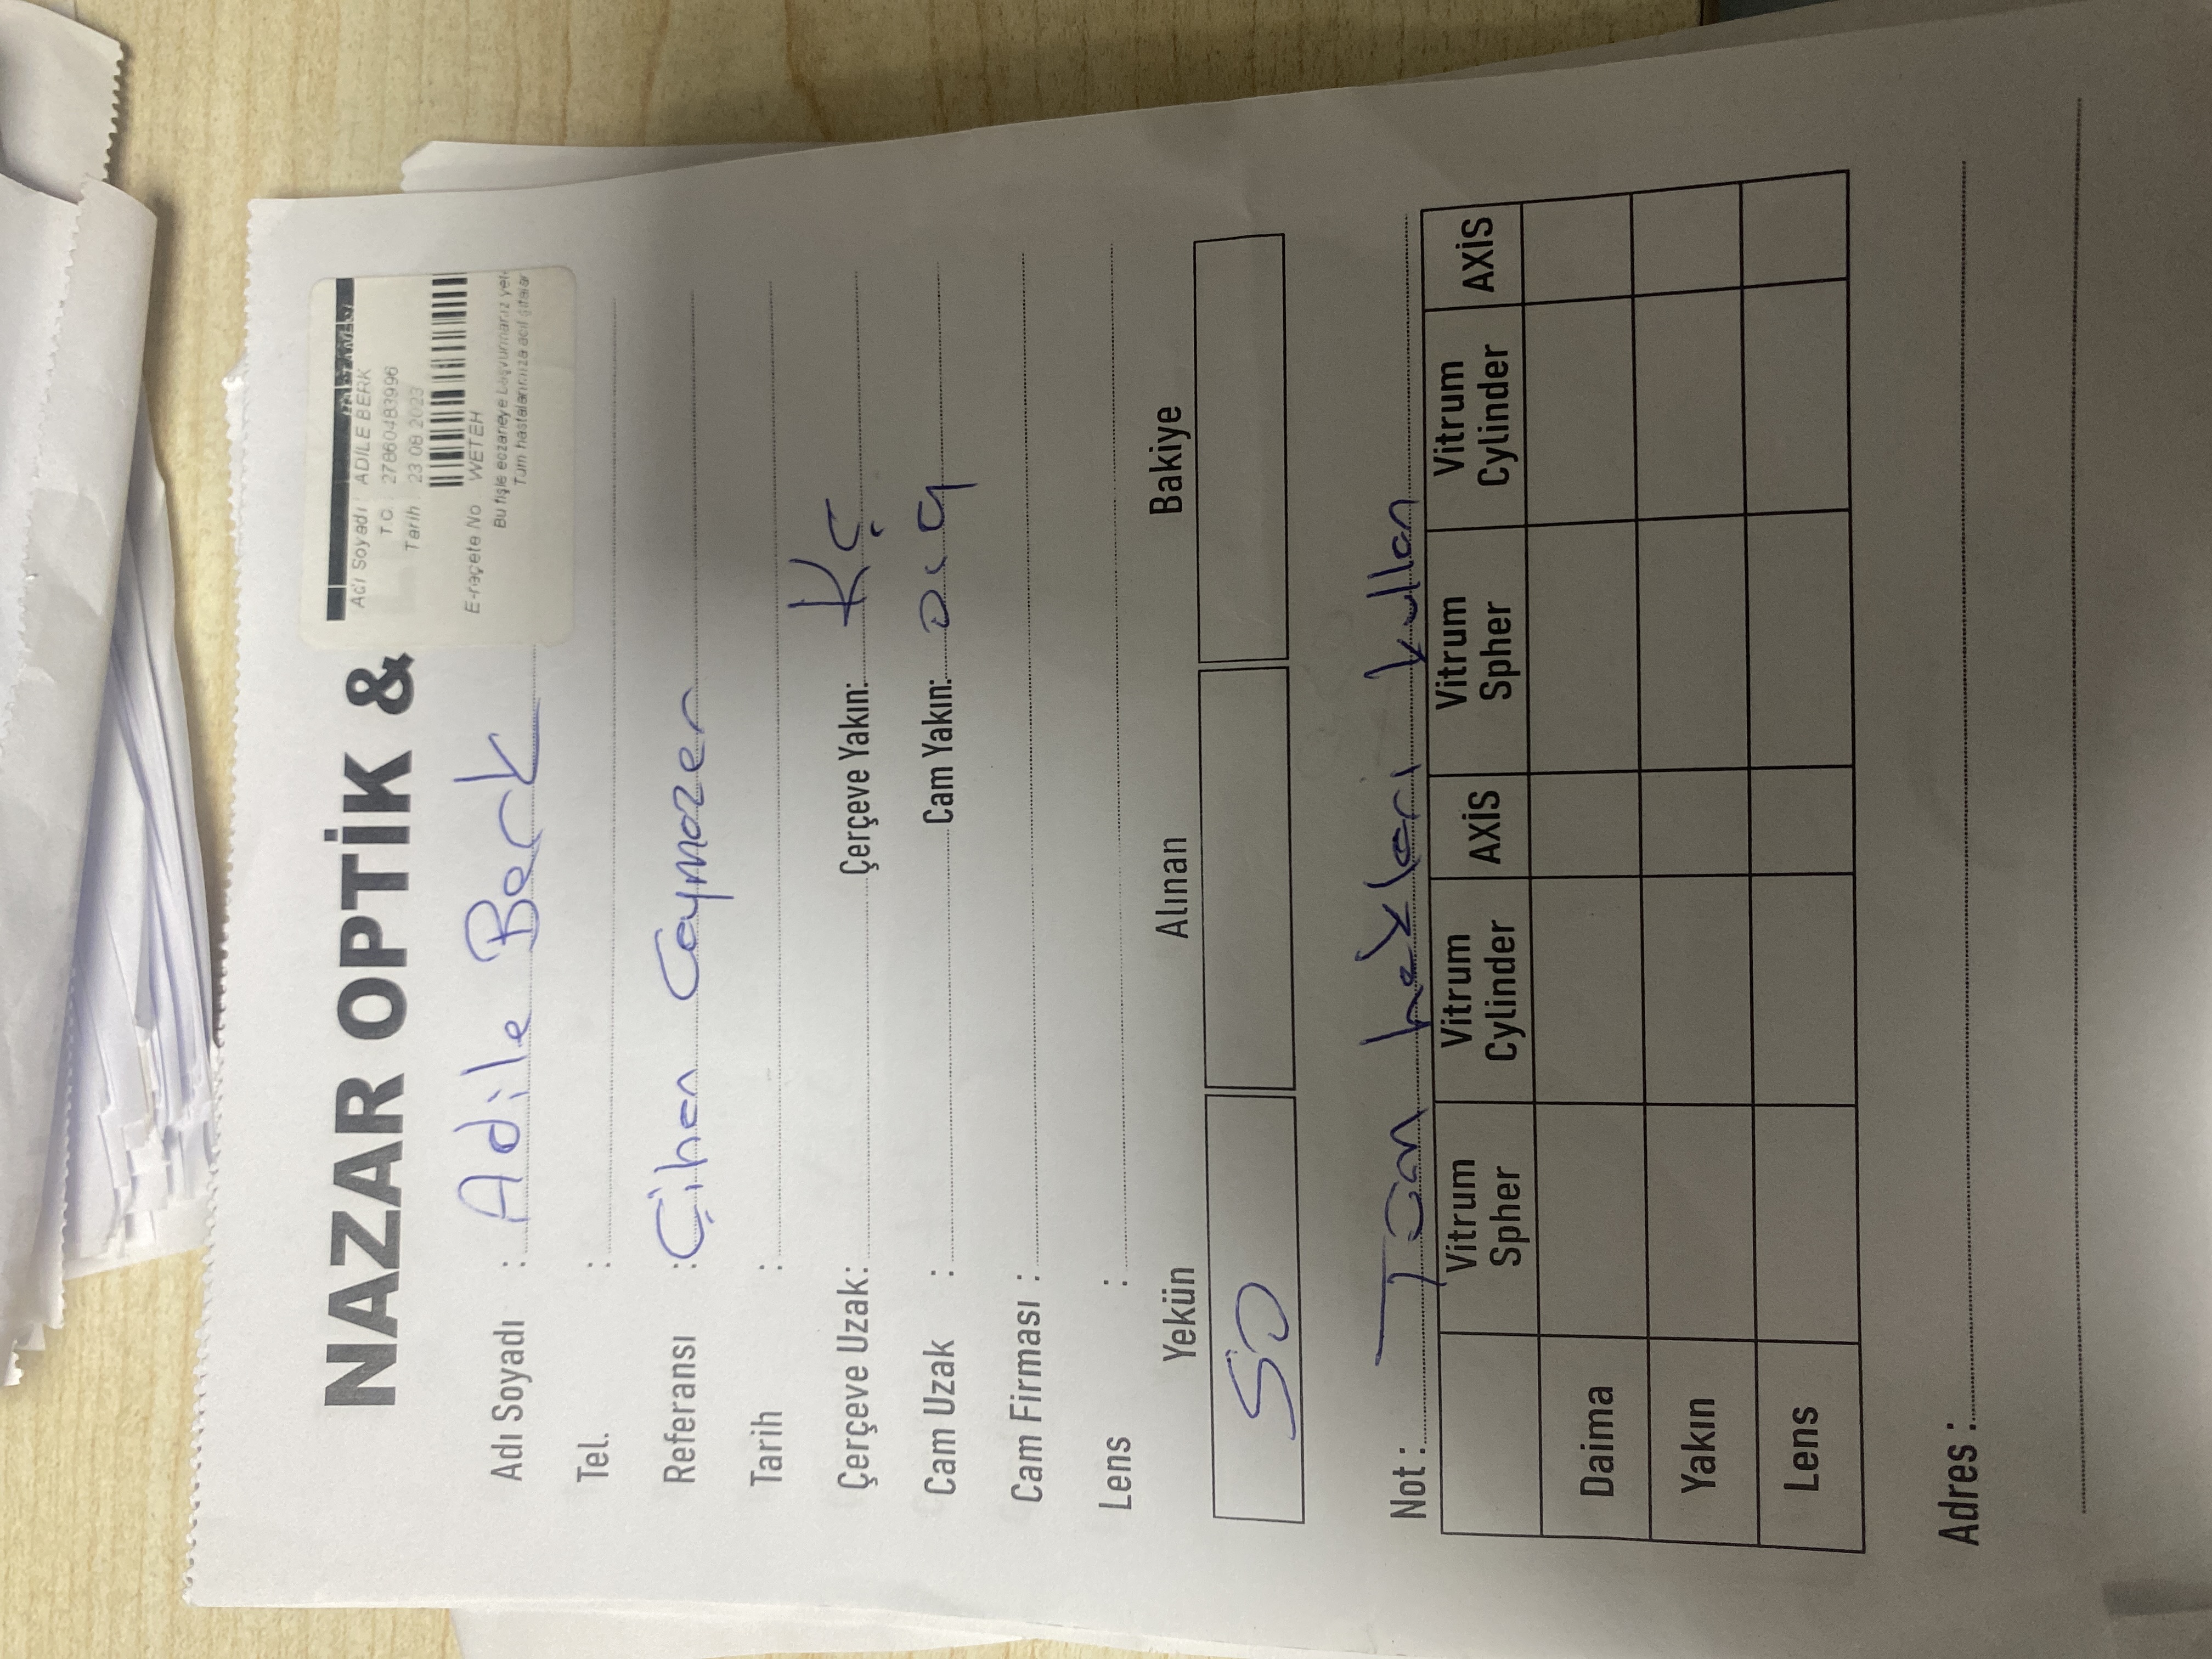 NAZAR OPTİK &
HASTANESİ
Adı Soyadı : ADİLE BERK
T.C. 27860483996
Tarih : 23.08.2023
E-reçete No WETEH
Bu fişle eczaneye başvurmanız yet
Tüm hastalarımıza acil şifalar
Adı Soyadı : Adile Berk
Tel. :
Referansı : Cihan Caymazer
Tarih :
Çerçeve Uzak: Çerçeve Yakın: KÇ
Cam Uzak : Cam Yakın:
Cam Firması :
Lens :
Yekün Alınan Bakiye
50
Not : Tüm hakları kullan
Vitrum Spher Vitrum Cylinder AXİS Vitrum Spher Vitrum Cylinder AXİS
Daima
Yakın
Lens
Adres :